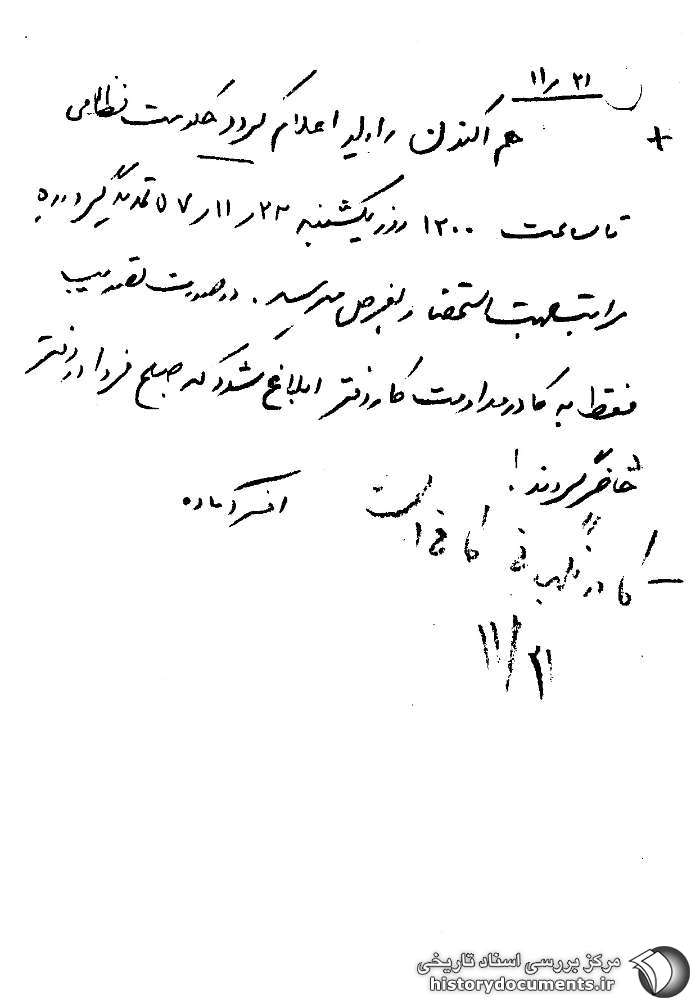 ۲۱ ر ۱۱
+ هم اکنون رادیو اعلام کرد حکومت نظامی
تا ساعت ۱۲۰۰ روز یکشنبه ۲۲ ر ۱۱ ر ۵۷ تمدید گردیده
مراتب جهت استحضار بعرض میرسد. در صورت تصویب
فقط به کادر مداومت کار دفتر ابلاغ شود که صبح فردا در دفتر
حاضر گردند.
افسر آماده
- کادر نگهبانی کافی است
۲۱/۱۱
مرکز بررسی اسناد تاریخی
historydocuments.ir